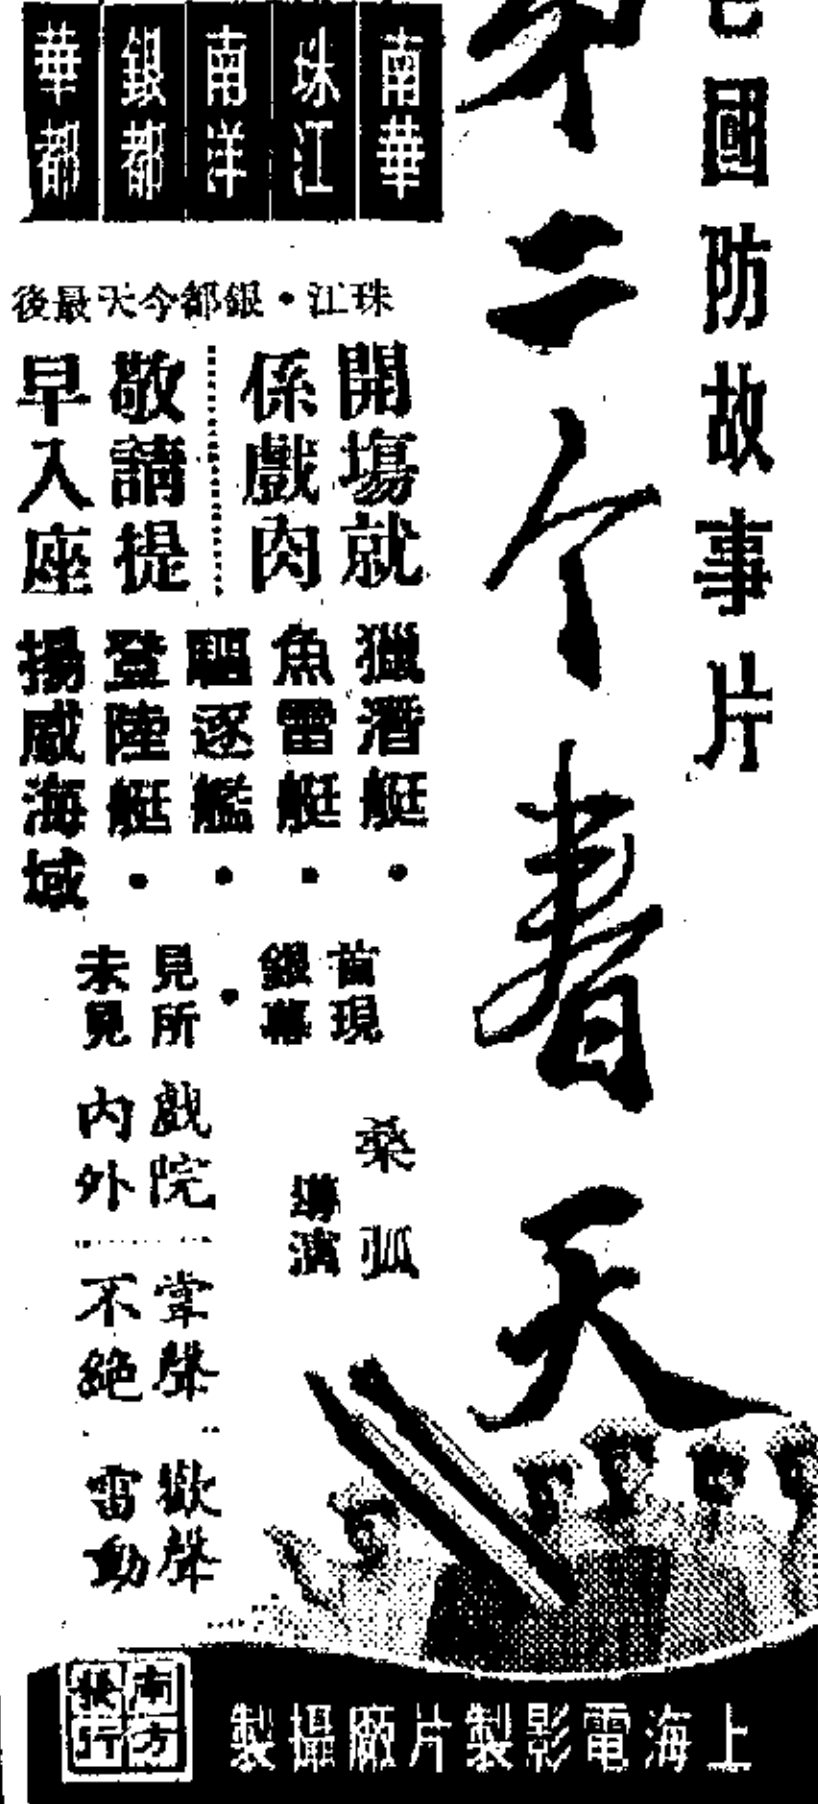 國防故事片
二个春天
南華
珠江
南洋
銀都
華都
珠江・銀都今天最後
開場就
係戲肉
敬請提
早入座
獵潛艇・
魚雷艇・
驅逐艦・
登陸艇・
揚威海域
首現
銀幕・
見所
未見
桑弧
導演
戲院
內外
掌聲
不絕
歡聲
雷動
南方
發行
上海電影製片廠攝製